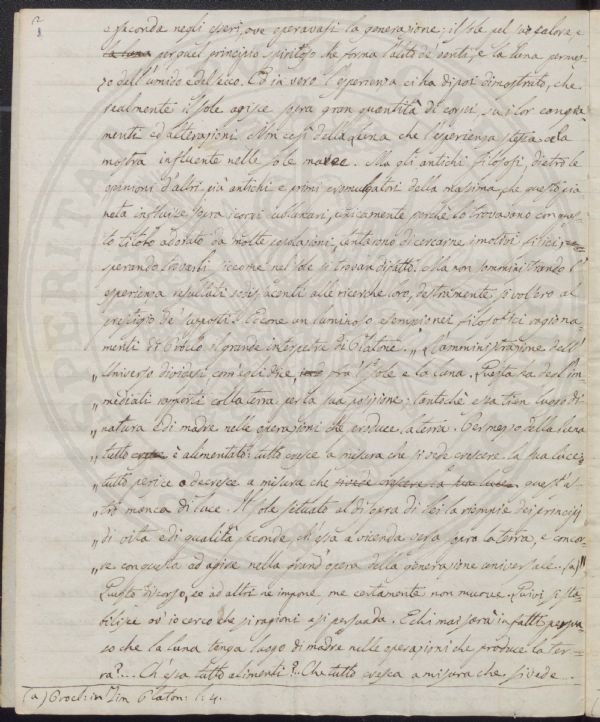 2
e seconda negli esseri, ove operavasi la generazione; il sole pel suo calore, e
la luna per quel principio spiritoso che forma l'alito de' venti, e la luna per mez-
zo dell'umido e del secco. Ed in vero l'esperienza ci ha dipoi dimostrato, che
realmente il sole agisce sopra gran quantità di corpi, su i lor cangia
menti ed alterazioni. Non così della Luna che l'esperienza stessa ce la
mostra influente nelle sole maree. Ma gli antichi filosofi, dietro le
opinioni d'altri più antichi e primi promulgatori della massima, che questo pia
neta influisse sopra i corpi sullunari, unicamente perchè lo trovavano con que-
sto titolo adorato da molte popolazioni, tentarono di cercarne i motivi fisici,
sperando trovarli siccome nel sole si trovan difatto. Ma non somministrando l'
esperienza resultati sodisfacenti alle ricerche loro, destramente si volsero al
prestigio de' supposti. Eccone un luminoso esempio nei filosofici ragiona-
menti di Proclo il grande interpetre di Platone. „ L'amministrazione dell'
„ Universo dividesi com'egli dice, fra 'l Sole e la Luna. Questa ha degl'im-
„ mediati rapporti colla terra per la sua posizione: tantochè essa tien luogo di
„ natura e di madre nelle operazioni che produce la terra. Per mezzo della Luna
„ tutto è alimentato: tutto cresce a misura che si vede crescere la sua luce:
„ tutto perisce o decresce a misura che si vede crescere la sua luce quest'a
„ stro manca di luce. Il sole situato al di sopra di lei la riempie dei principj
„ di vita e di qualità feconde, ch'essa a vicenda versa sopra la terra, e concor-
„ re con questa ad agire nella grand'opera della generazione universale. (a) „
Questo discorso, se ad altri ne impone, me certamente non muove. Quivi si sta-
bilisce ov'io cerco che si ragioni a si persuada. E chi mai sarà in fatti persua
so che la luna tenga luogo di madre nelle operazioni che produce la ter-
ra?... Ch'essa tutto alimenti?.. Che tutto cresca a misura che si vede
(a) Procl: in Tim Platon: l: 4.